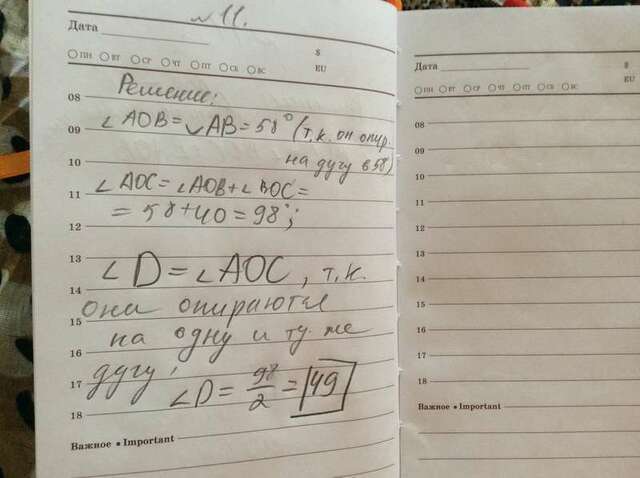 № 11.
Дата
$
EU
ПН ВТ СР ЧТ ПТ СБ ВС
08 Решение:
09 ∠AOB = ◡AB = 58° (т.к. он опир.
10 на дугу в 58)
11 ∠AOC = ∠AOB + ∠BOC =
12 = 58 + 40 = 98°;
13
14 ∠D = ∠AOC, т.к.
15 они опираются
16 на одну и ту же
17 дугу;
18 ∠D = 98/2 = 49
Важное • Important
Дата
$
EU
ПН ВТ СР ЧТ ПТ СБ ВС
08
09
10
11
12
13
14
15
16
17
18
Важное • Important